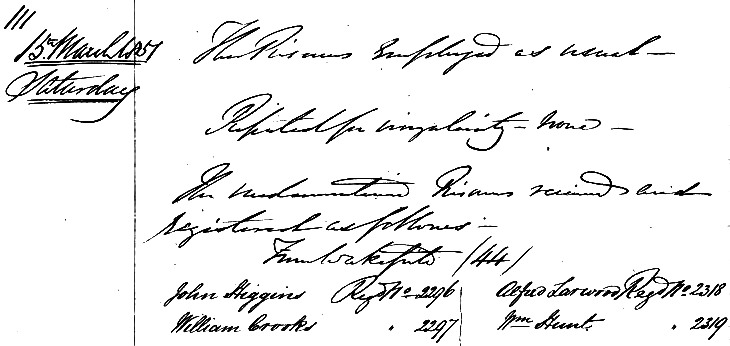 111
15th March 1851
Saturday
The Prisoners Employed as usual —
Reported for irregularity — None —
The undermentioned Prisoners received and
registered as follows —
From Wakefield (44)
John Higgins Regd No. 2296
William Crooks " 2297
Alfred Larwood Regd No 2318
Wm Hunt " 2319